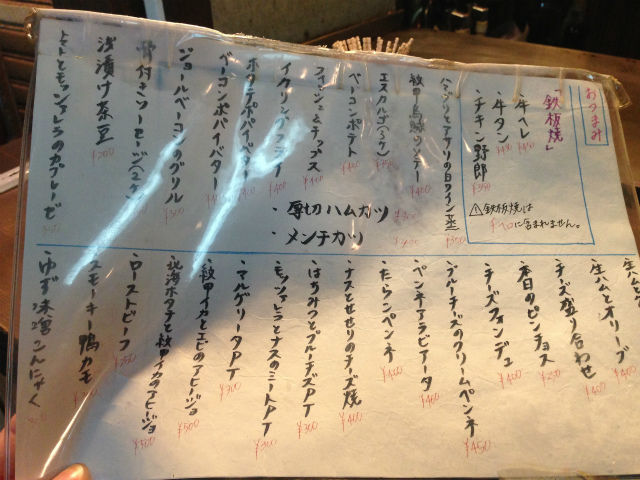 おつまみ
「鉄板焼」
・牛ヘレ ¥450
・牛タン ¥450
・チキン野郎 ¥350
⚠鉄板焼は
チヘロに含まれません。
ハマグリとアサリの白ワイン蒸 ¥500
¥400
エスカルゴ
ベーコンポテト
フィッシュ&チップス
イカリングフライ ¥400
ベーコンポパイバター
ショルダーベーコンのグリル ¥300
骨付きソーセージ
浅漬け茶豆 ¥200
トマトモッツァレラのカプレーゼ
・厚切ハムカツ ¥300
・メンチカツ
生ハムと
生ハムとオリーブ ¥400
チーズ盛り合わせ ¥400
本日のピンチョス
チーズフォンデュ ¥400
ブルーチーズのクリームペンネ ¥450
ペンネアラビアータ ¥400
たらこペンネ
ナスとせせりのチーズ焼 ¥400
はちみつとブルーチーズPT ¥300
モッツァレラとナスのミートPT ¥300
マルゲリータPT ¥300
紋甲イカとエビのアヒージョ ¥500
北海ホタテと紋甲イカのアヒージョ ¥500
ローストビーフ
スモーキー鴨カモ
ゆず味噌こんにゃく